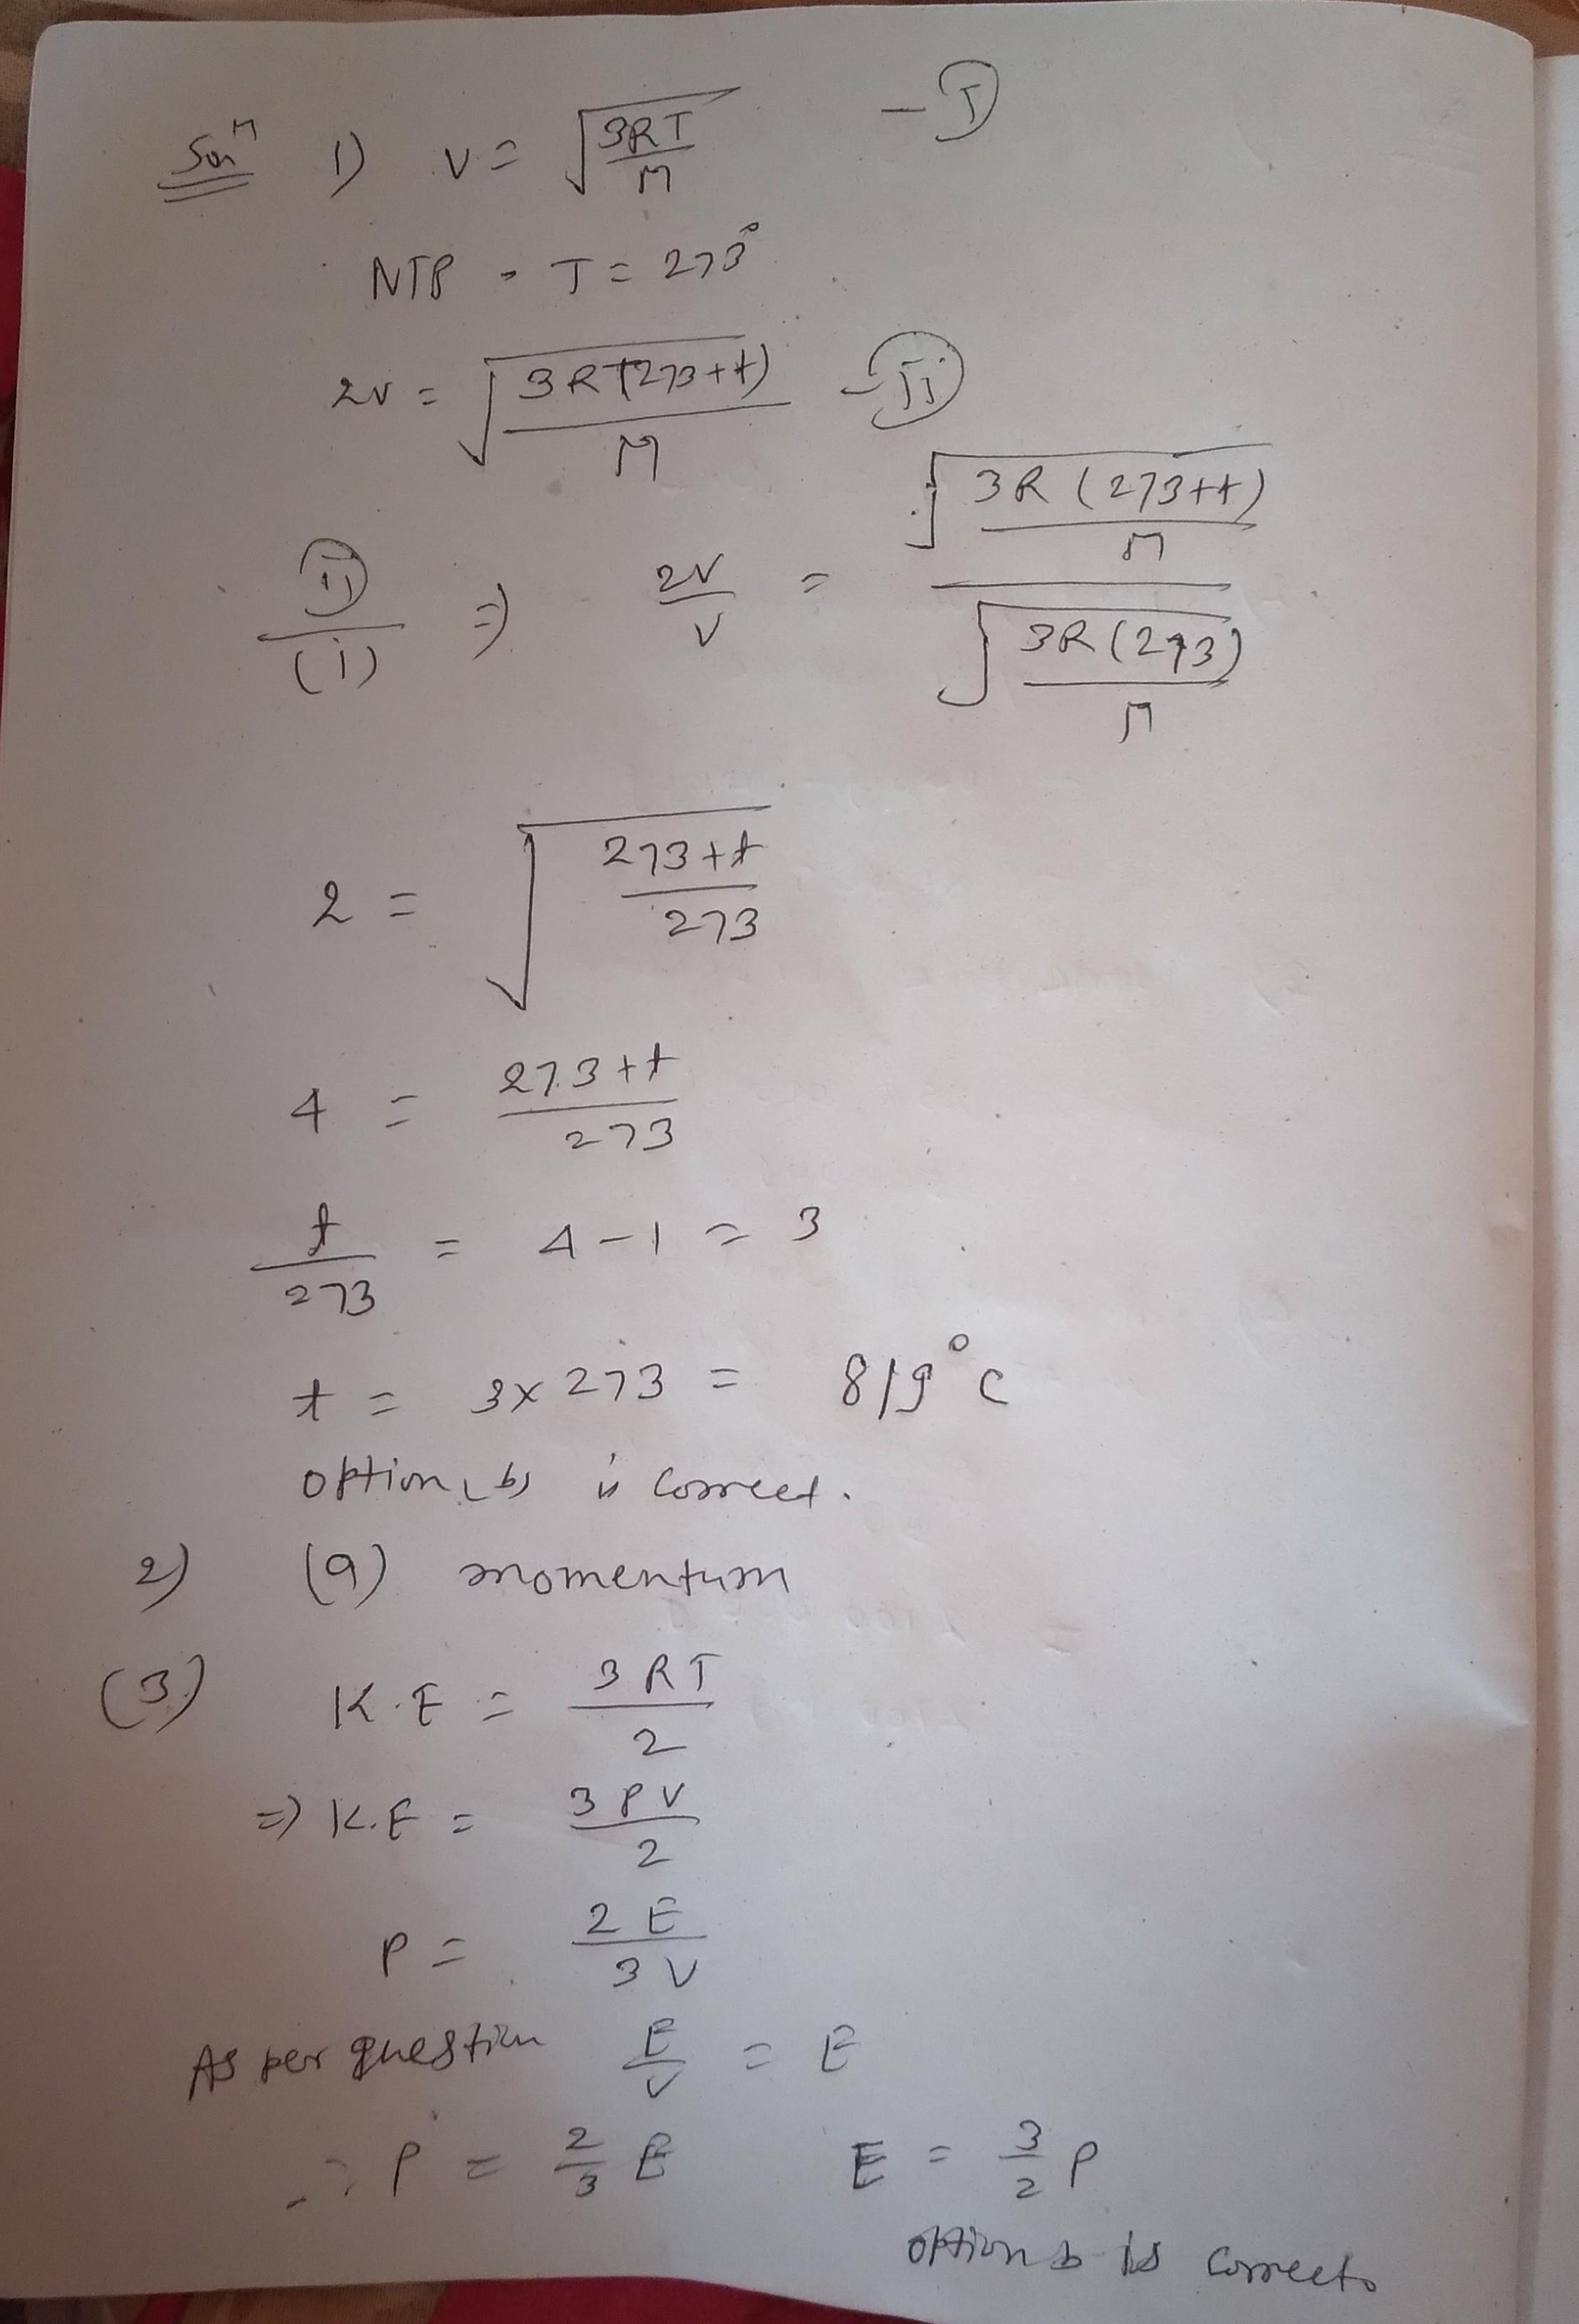 Solⁿ 1) v = √(3RT/M) - (I)
NTP - T = 273°
2v = √(3RT(273+t)/M) - (II)
(II)/(i) ⇒ 2v/v = √(3R(273+t)/M) / √(3R(273)/M)
2 = √((273+t)/273)
4 = (273+t)/273
t/273 = 4-1 = 3
t = 3×273 = 819°C
option (b) is correct.
2) (a) momentum
(3) K.E = 3RT/2
⇒ K.E = 3PV/2
P = 2E/3V
As per question E/V = E
∴ P = 2/3 E E = 3/2 P
option b is correct.